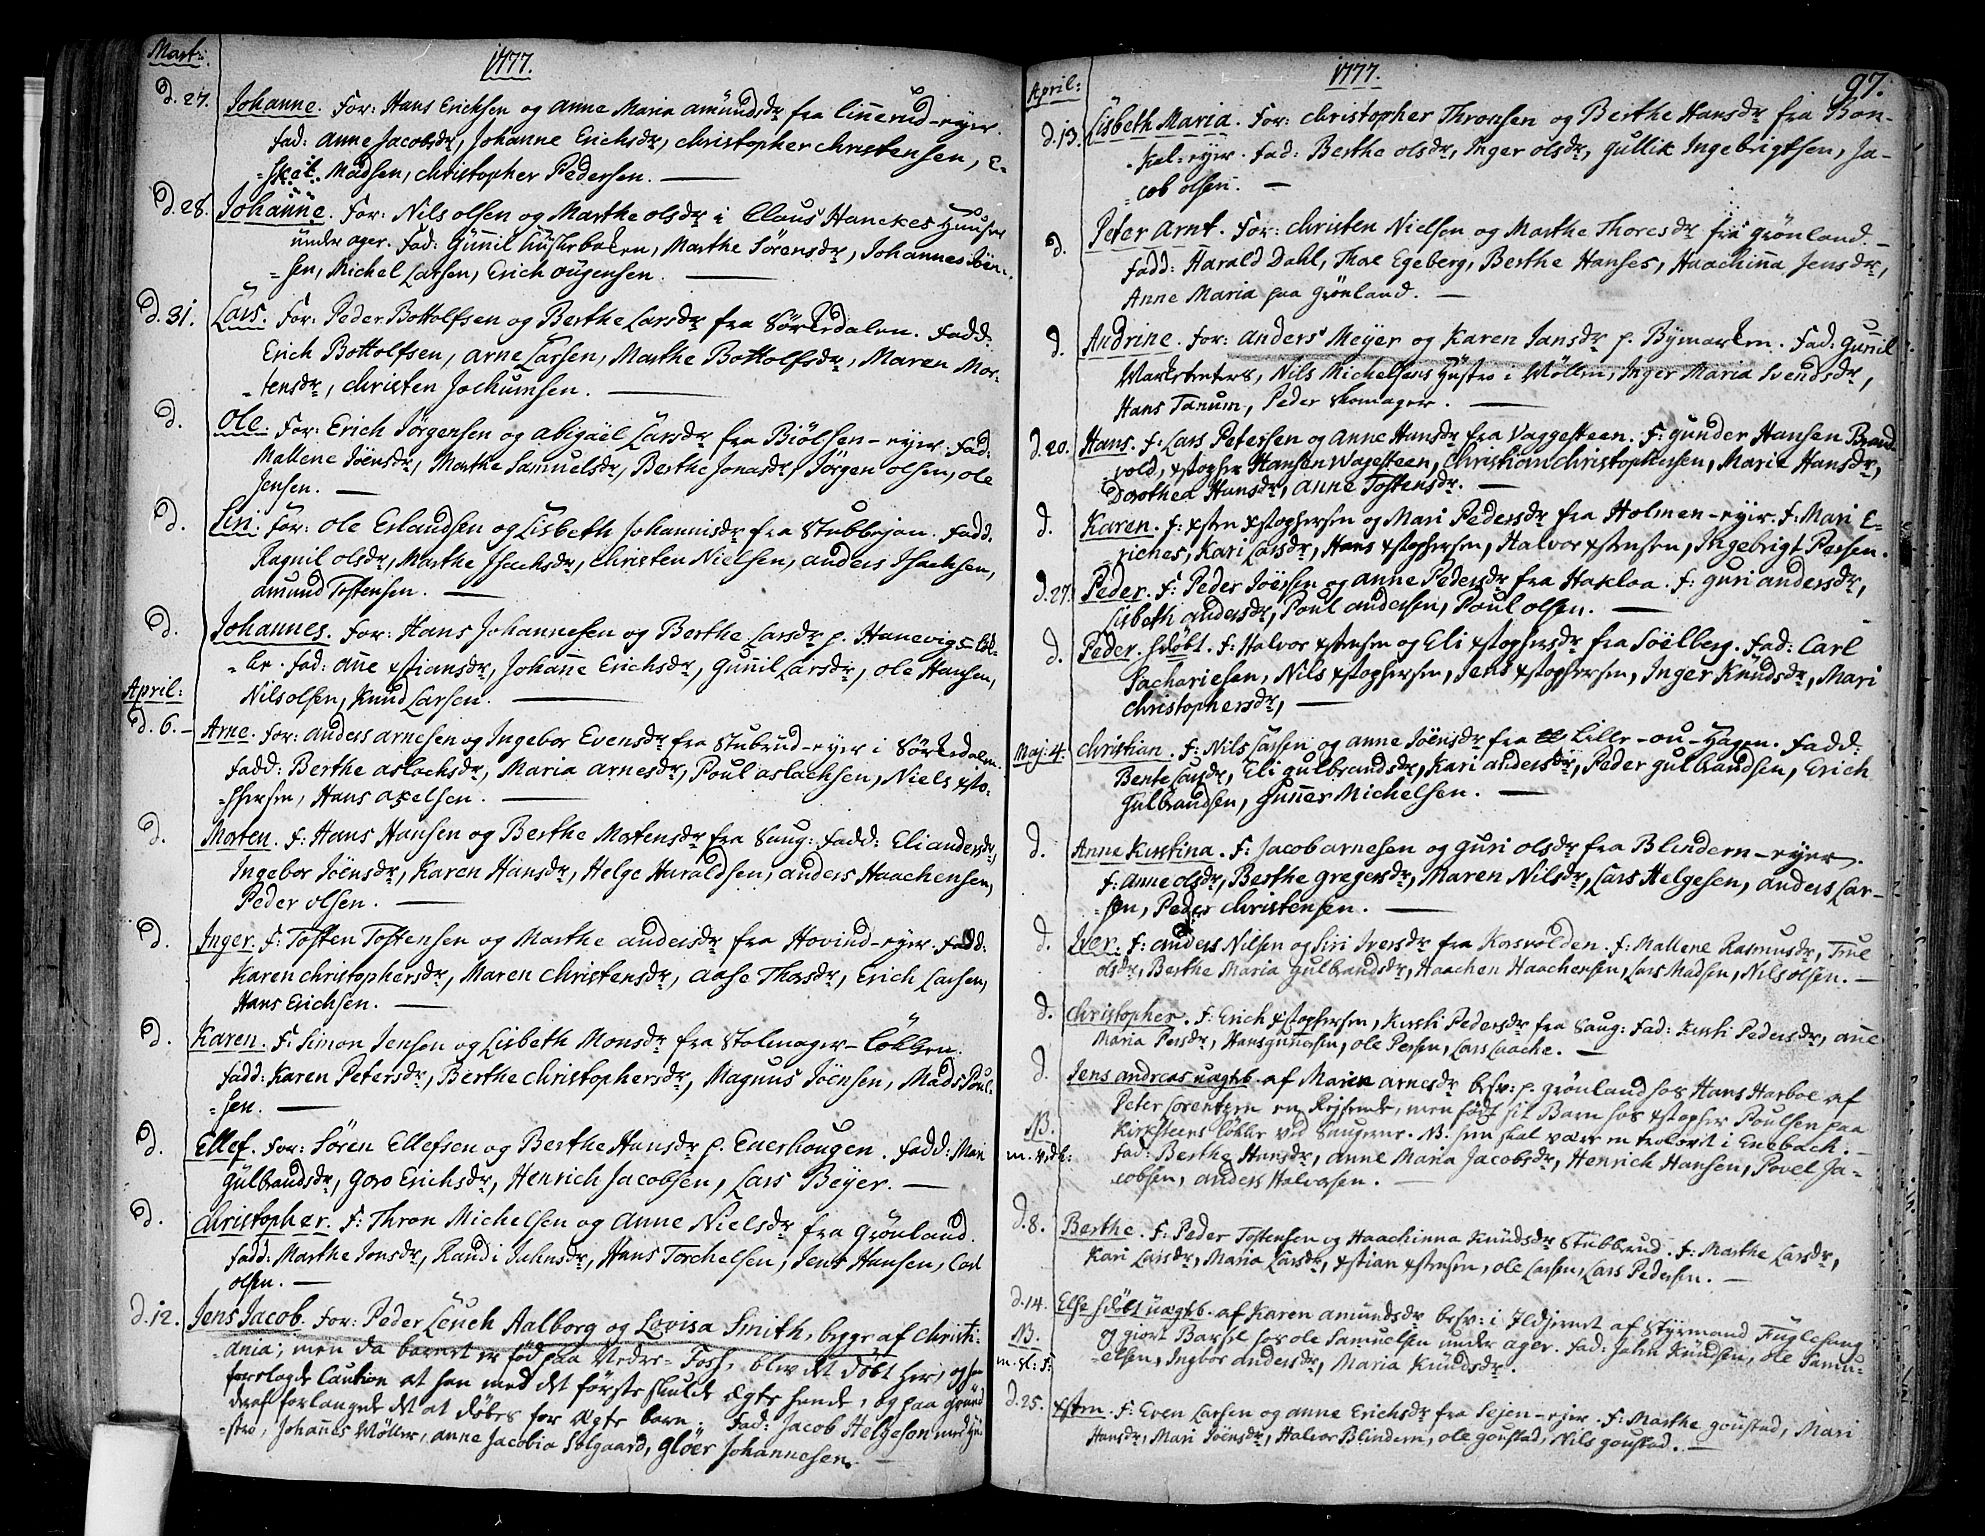 Mart:
1777.
d. 27. Johanne. For: Hans Erichsen og Anne Maria Amundsdr fra Linnerud-eyer.
Fad: Anne Jacobsdr, Johanne Erichsdr, Christopher Christensen, E-
=skil Madsen, Christopher Pedersen. —
d. 28. Johanne. For: Nils Olsen og Marthe Olsdr i Claus Hanckes Huuser
under ager. Fad: Gunnil, Marthe Sörensdr, Johannes Iörn-
=sen, Michel Larsen, Erich Ougensen. —
d. 31. Lars. For: Peder Bottolfsen og Berthe Larsdr fra Sörkedalen. Fadd:
Erich Bottolfsen, Arne Larsen, Marthe Bottolfsdr, Maren Mor-
=tensdr, Christen Jochumsen. —
d. Ole. For: Erich Jörgensen og Abigaël Larsdr fra Biölsen-eyer. Fad:
Mallene Iöensdr, Marthe Samuelsdr, Berthe Jonasdr, Jörgen Olsen, Ole
Jensen. —
d. Siri. For: Ole Erlandsen og Lisbeth Johannisdr fra Stubbejan. Fadd.
Ragnil Olsdr, Marthe Isachsdr, Christen Nielsen, Anders Isachsen,
Amund Tostensen. —
d. Johannes. For: Hans Johannesen og Berthe Larsdr p. Hanevigs=Löl-
=ke. Fad: Anne Xstiansdr, Johanne Erichsdr, Gunnil Larsdr, Ole Hansen,
Nils Olsen, Knud Larsen. —
April:
d. 6. Arne. For: Anders Arnesen og Ingebor Evensdr fra Stubrud-eyer i Sörkedalen.
Fadd: Berthe Aslachsdr, Maria Arnesdr, Poul Aslachsen, Niels Xsto-
=phersen, Hans Axelsen. —
d. Morten. F: Hans Hansen og Berthe Mortensdr fra Saug: Fadd: Eli Andersdr,
Ingebor Iöensdr, Karen Hansdr, Helge Haraldsen, Anders Haachensen,
Peder Olsen. —
d. Inger. F: Tosten Tostensen og Marthe Andersdr fra Hovind-eyer. Fadd:
Karen Christophersdr, Maren Christensdr, Aase Thorsdr, Erich Larsen,
Hans Erichsen. —
d. Karen. F: Simon Jensen og Lisbeth Monsdr fra Stalmager-Lökken.
Fadd: Karen Petersdr, Berthe Christophersdr, Magnus Iöensen, Mads Poul-
=sen. —
d. Ellef. For: Sören Ellefsen og Berthe Hansdr p. Enerhougen. Fadd: Mari
Gulbrandsdr, Goro Erichsdr, Henrich Jacobsen, Lars Beyer. —
d. Christopher. F: Thron Michelsen og Anne Nielsdr fra Grönland.
Fadd: Marthe Jonsdr, Randi Juhnsdr, Hans Torchelsen, Jens Hansen, Carl
Olsen. —
d. 12. Jens Jacob. For: Peder Leuch Aalborg og Lovisa Smith, begge af Christi-
=ania; men da barnet er född paa Nedre-Foss, blev det döbt her, og han
forelagde Caution at han med det förste skulde ægte hende, og paa grund
deraf forlangede det at döbes for Ægte barn. Fad: Jacob Helgeson med Hu-
=stro, Johannes Möller, Anne Jacobia Solgaard, Glöer Johannesen.
1777.
97.
April:
d. 13. Lisbeth Maria. For: Christopher Thronsen og Berthe Hansdr fra Bon-
=kal=eyer. Fad: Berthe Olsdr, Inger Olsdr, Gullik Ingebrigtsen, Ja-
=cob Olsen. —
d. Peter Arnt. For: Christen Nielsen og Marthe Thoresdr fra Grönland. —
Fadd: Harald Dahl, Thoe Egeberg, Berthe Hanses, Haachinna Jensdr,
Anne Maria paa Grönland. —
d. Andrine. For: Anders Meyer og Karen Jansdr p. Bymarken. Fad: Gunil
Nils Michelsens Hustro i Möllen, Inger Maria Svendsdr,
Hans Tanum, Peder Skomager. —
d. 20. Hans. F: Lars Petersen og Anne Hansdr fra Vaggesteen. F: Gunder Hansen Brand-
vold, Xstopher Hansen Wagesteen, Christian Christophersen, Marie Hansdr,
Dorothea Hansdr, Anne Tostensdr. —
d. Karen. F: Xsten Xstophersen og Mari Pedersdr fra Holmen-eyer. F: Mari E-
riches, Kari Larsdr, Hans Xstophersen, Halvor Xstensen, Ingebrigt Persen.
d. 27. Peder. F: Peder Iöersen og Anne Pedersdr fra Hakloa. F: Guri Andersdr,
Lisbeth Andersdr, Poul Andersen, Poul Olsen. —
d. Peder. hdöbt. F: Halvor Xstensen og Eli Xstophersdr fra Solberg. Fad: Carl
Sachariesen, Nils Xstophersen, Jens Xstophersen, Inger Knudsdr, Mari
Christophersdr, —
Maj: 4. Christian. F: Nils Larsen og Anne Iöensdr fra Lille-ou-Hagen. Fadd:
Bente Larsdr, Eli Gulbrandsdr, Kari Andersdr, Peder Gulbrandsen, Erich
Gulbrandsen, Gunner Michelsen. —
d. Anne Kirstina. F: Jacob Arnesen og Guri Olsdr fra Blindern-eyer.
F: Anne Olsdr, Berthe Gregersdr, Maren Nilsdr, Lars Helgesen, Anders Lar-
=sen, Peder Christensen. —
d. Iver. F: Anders Nilsen og Siri Iversdr fra Korsvolden. F: Mallene Rasmusdr, True
Olsdr, Berthe Maria Gulbrandsdr, Haachen Haachensen, Lars Madsen, Nils Olsen. —
d. Christopher. F: Erich Xstophersen, Kirsti Pedersdr fra Saug: Fad: Kirsti Pedersdr, Anne
Maria Persdr, Hans Gunersen, Ole Persen, Lars Laache. —
d. Jens Andreas uægteb. af Maren Arnesdr besv: p. Grönland hos Hans Harboe af
Peter Lorentzen en Rejsende, men födt sit Barn hos Xstopher Poulsen paa
NB. Kirksteens Lökke ved Saugerne. NB. hun skal være trolovet i Enebach. —
m. v. de: Fad: Berthe Hansdr, Anne Maria Jacobsdr, Henrich Hansen, Povel Ja-
cobsen, Anders Halvorsen. —
d. 8. Berthe. F: Peder Tostensen og Haachinna Knudsdr Stubbrud. F: Marthe Larsdr,
Kari Larsdr, Maria Larsdr, Xstian Xstensen, Ole Larsen, Lars Pedersen. —
d. 14. Else hdöbt uægteb. af Karen Amundsdr besv: i Ildjernet af Styrmand Fuglesang
NB. og giort Barsel hos Ole Samuelsen under ager. Fad: John Knudsen, Ole Samu-
m. st: F: elsen, Ingbor Andersdr, Maria Knudsdr.
d. 25. Xsten. F: Even Larsen og Anne Erichsdr fra Sejen-ejer. F: Marthe Goustad, Mari
Hansdr, Mari Iöensdr, Halvor Blindern, Ole Goustad, Nils Goustad. —